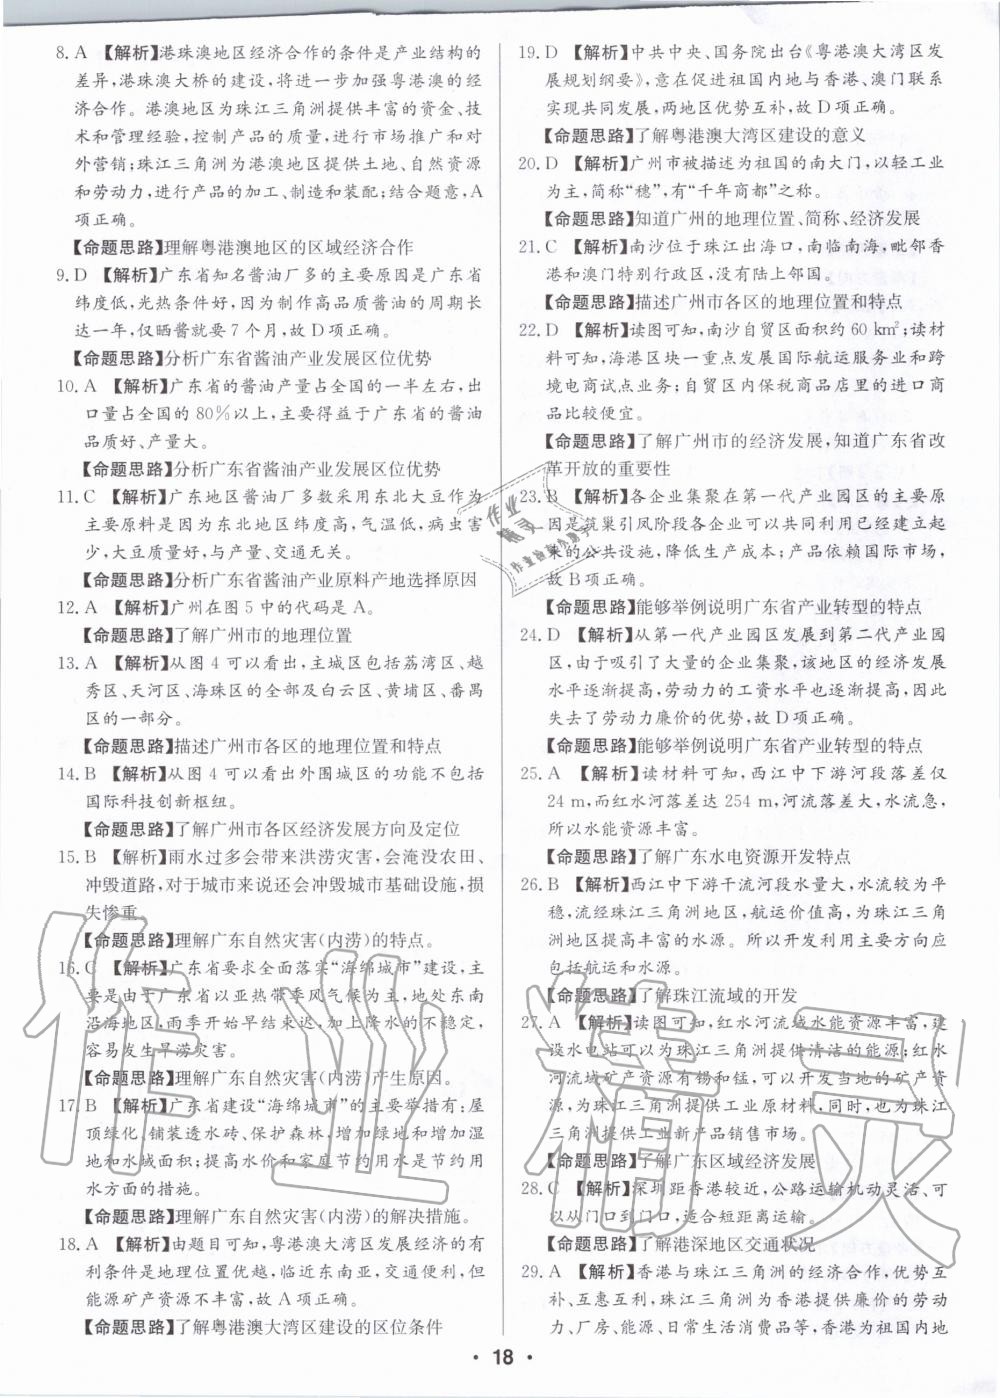 8. A 【解析】港珠澳地区经济合作的条件是产业结构的
差异,港珠澳大桥的建设,将进一步加强粤港澳的经
济合作。港澳地区为珠江三角洲提供丰富的资金、技
术和管理经验,控制产品的质量,进行市场推广和对
外营销;珠江三角洲为港澳地区提供土地、自然资源
和劳动力,进行产品的加工、制造和装配;结合题意,A
项正确。
【命题思路】理解粤港澳地区的区域经济合作
9. D 【解析】广东省知名酱油厂多的主要原因是广东省
纬度低,光热条件好,因为制作高品质酱油的周期长
达一年,仅晒酱就要7个月,故D项正确。
【命题思路】分析广东省酱油产业发展区位优势
10. A 【解析】广东省的酱油产量占全国的一半左右,出
口量占全国的80%以上,主要得益于广东省的酱油
品质好、产量大。
【命题思路】分析广东省酱油产业发展区位优势
11. C 【解析】广东地区酱油厂多数采用东北大豆作为
主要原料是因为东北地区纬度高,气温低,病虫害
少,大豆质量好,与产量、交通无关。
【命题思路】分析广东省酱油产业原料产地选择原因
12. A 【解析】广州在图5中的代码是A。
【命题思路】了解广州市的地理位置
13. A 【解析】从图4可以看出,主城区包括荔湾区、越
秀区、天河区、海珠区的全部及白云区、黄埔区、番禺
区的一部分。
【命题思路】描述广州市各区的地理位置和特点
14. B 【解析】从图4可以看出外围城区的功能不包括
国际科技创新枢纽。
【命题思路】了解广州市各区经济发展方向及定位
15. B 【解析】雨水过多会带来洪涝灾害,会淹没农田、
冲毁道路,对于城市来说还会冲毁城市基础设施,损
失惨重。
【命题思路】理解广东自然灾害(内涝)的特点。
16. C 【解析】广东省要求全面落实“海绵城市”建设,主
要是由于广东省以亚热带季风气候为主,地处东南
沿海地区,雨季开始早结束迟,加上降水的不稳定,
容易发生旱涝灾害。
【命题思路】理解广东自然灾害(内涝)产生原因。
17. B 【解析】广东省建设“海绵城市”的主要举措有:屋
顶绿化、铺装透水砖、保护森林,增加绿地和增加湿
地和水域面积;提高水价和家庭节约用水是节约用
水方面的措施。
【命题思路】理解广东自然灾害(内涝)的解决措施。
18. A 【解析】由题目可知,粤港澳大湾区发展经济的有
利条件是地理位置优越,临近东南亚,交通便利,但
能源矿产资源不丰富,故A项正确。
【命题思路】了解粤港澳大湾区建设的区位条件
19. D 【解析】中共中央、国务院出台《粤港澳大湾区发
展规划纲要》,意在促进祖国内地与香港、澳门联系
实现共同发展,两地区优势互补,故D项正确。
【命题思路】了解粤港澳大湾区建设的意义
20. D 【解析】广州市被描述为祖国的南大门,以轻工业
为主,简称“穗”,有“千年商都”之称。
【命题思路】知道广州的地理位置、简称、经济发展
21. C 【解析】南沙位于珠江出海口,南临南海,毗邻香
港和澳门特别行政区,没有陆上邻国。
【命题思路】描述广州市各区的地理位置和特点
22. D 【解析】读图可知,南沙自贸区面积约60 km²;读材
料可知,海港区块一重点发展国际航运服务业和跨
境电商试点业务;自贸区内保税商品店里的进口商
品比较便宜。
【命题思路】了解广州市的经济发展,知道广东省改
革开放的重要性
23. B 【解析】各企业集聚在第一代产业园区的主要原
因是筑巢引凤阶段各企业可以共同利用已经建立起
来的公共设施,降低生产成本;产品依赖国际市场,
故B项正确。
【命题思路】能够举例说明广东省产业转型的特点
24. D 【解析】从第一代产业园区发展到第二代产业园
区,由于吸引了大量的企业集聚,该地区的经济发展
水平逐渐提高,劳动力的工资水平也逐渐提高,因此
失去了劳动力廉价的优势,故D项正确。
【命题思路】能够举例说明广东省产业转型的特点
25. A 【解析】读材料可知,西江中下游河段落差仅
24 m,而红水河落差达254 m,河流落差大,水流急,
所以水能资源丰富。
【命题思路】了解广东水电资源开发特点
26. B 【解析】西江中下游干流河段水量大,水流较为平
稳,流经珠江三角洲地区,航运价值高,为珠江三角
洲地区提高丰富的水源。所以开发利用主要方向应
包括航运和水源。
【命题思路】了解珠江流域的开发
27. A 【解析】读图可知,红水河流域水能资源丰富,建
设水电站可以为珠江三角洲提供清洁的能源;红水
河流域矿产资源有锡和锰,可以开发当地的矿产资
源,为珠江三角洲提供工业原材料,同时,也为珠江
三角洲提供工业新产品销售市场。
【命题思路】了解广东区域经济发展
28. C 【解析】深圳距香港较近,公路运输机动灵活、可
以从门口到门口,适合短距离运输。
【命题思路】了解港深地区交通状况
29. A 【解析】香港与珠江三角洲的经济合作,优势互
补、互惠互利,珠江三角洲为香港提供廉价的劳动
力、厂房、能源、日常生活消费品等,香港为祖国内地
· 18 ·
作业精灵